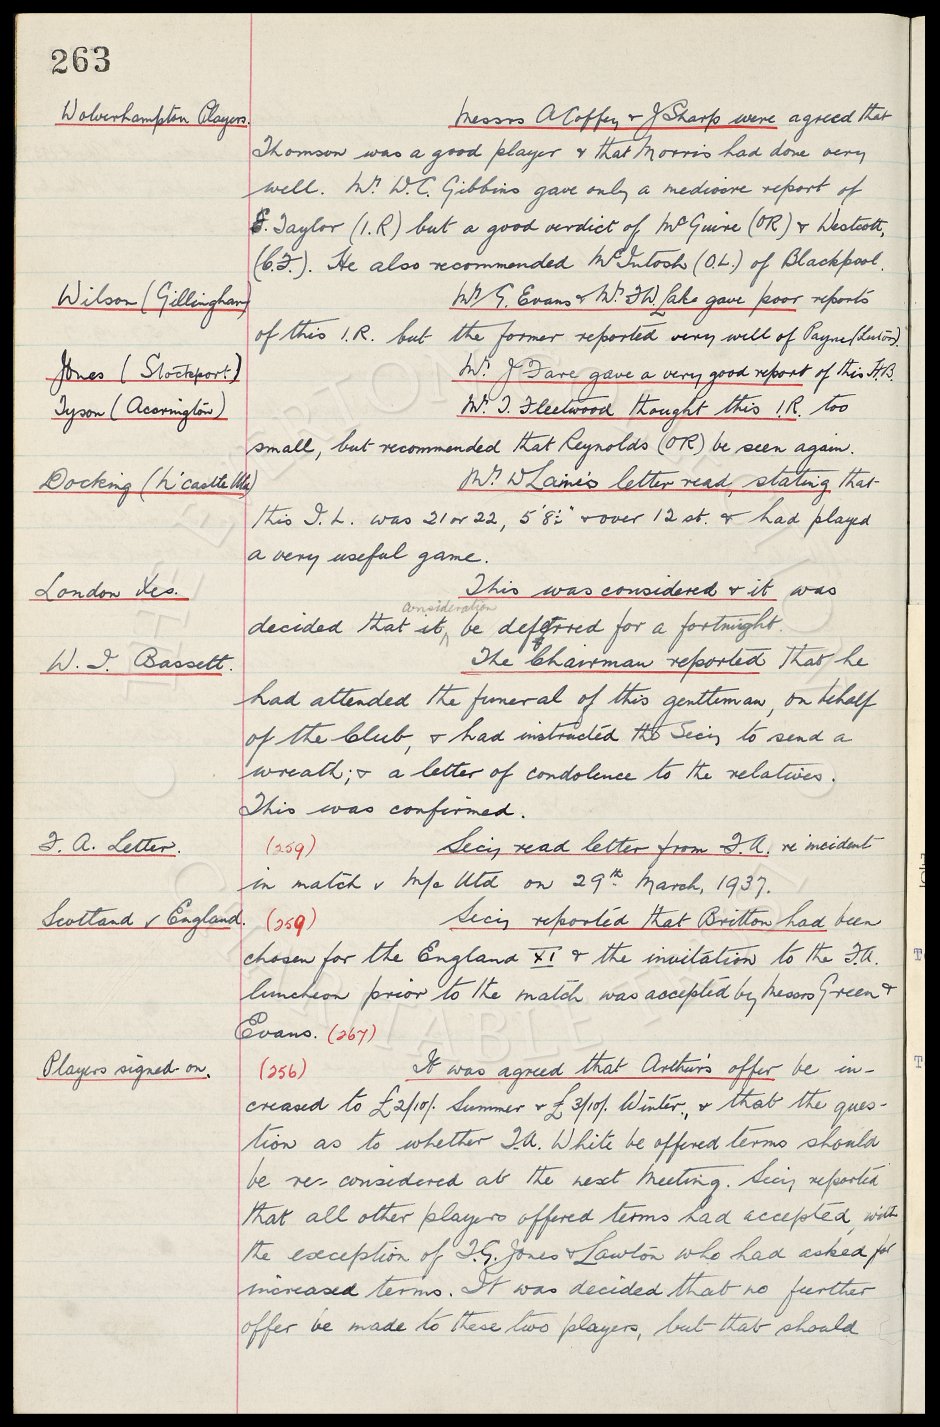 263
Wolverhampton Players. Messrs A Coffey & J Sharp were agreed that
Thomson was a good player & that Morris had done very
well. Mr. W.C. Gibbins gave only a mediocre report of
G. Taylor (I.R) but a good verdict of McGuire (OR) & Westcott,
(C.F.). He also recommended McIntosh (O.L.) of Blackpool.
Wilson (Gillingham) Mr G. Evans & Mr. F.W. Lake gave poor reports
of this I.R. but the former reported very well of Payne (Luton).
Jones (Stockport.) Mr. J Fare gave a very good report of this H.B.
Tyson (Accrington) Mr. T. Fleetwood thought this I.R. too
small, but recommended that Reynolds (OR) be seen again.
Docking (N'castle Utd) Mr. D Laine's letter read, stating that
this I.L. was 21 or 22, 5'8½" & over 12 st. & had played
a very useful game.
London Xes. This was considered & it was
consideration
decided that it be deferred for a fortnight.
W. I. Bassett. The Chairman reported that he
had attended the funeral of this gentleman, on behalf
of the Club, & had instructed the Secy to send a
wreath; & a letter of condolence to the relatives.
This was confirmed.
F. A. Letter. (259) Secy read letter from F.A. re incident
in match v M/c Utd on 29th March, 1937.
Scotland v England. (259) Secy reported that Britton had been
chosen for the England XI & the invitation to the F.A.
luncheon prior to the match was accepted by Messrs Green &
Evans. (267)
Players signed on. (256) It was agreed that Arthur's offer be in-
creased to £2/10/. Summer & £3/10/. Winter, & that the ques-
tion as to whether T.A. White be offered terms should
be re-considered at the next Meeting. Secy reported
that all other players offered terms had accepted, with
the exception of T.G. Jones & Lawton who had asked for
increased terms. It was decided that no further
offer be made to these two players, but that should